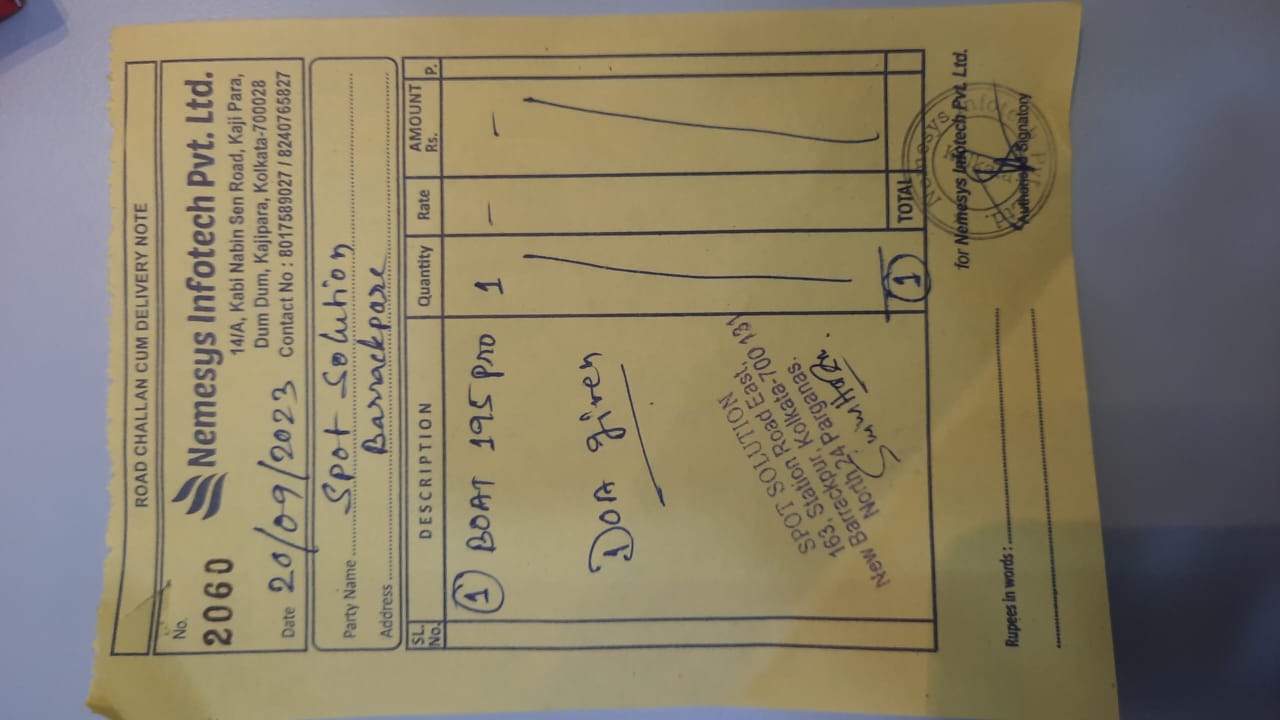 ROAD CHALLAN CUM DELIVERY NOTE
No.
2060
Nemesys Infotech Pvt. Ltd.
14/A, Kabi Nabin Sen Road, Kaji Para,
Dum Dum, Kajipara, Kolkata-700028
Date 20/09/2023 Contact No : 8017589027 / 8240765827
Party Name Spot Solution
Address Barrackpore
SL. No. DESCRIPTION Quantity Rate AMOUNT Rs. P.
1 BOAT 195 pro 1 – –
DOA given
SPOT SOLUTION
163, Station Road East,
New Barrackpur, Kolkata-700 131
North 24 Parganas.
1 TOTAL
for Nemesys Infotech Pvt. Ltd.
Rupees in words :
Authorised Signatory
Nemesys Infotech Pvt. Ltd.
Kolkata